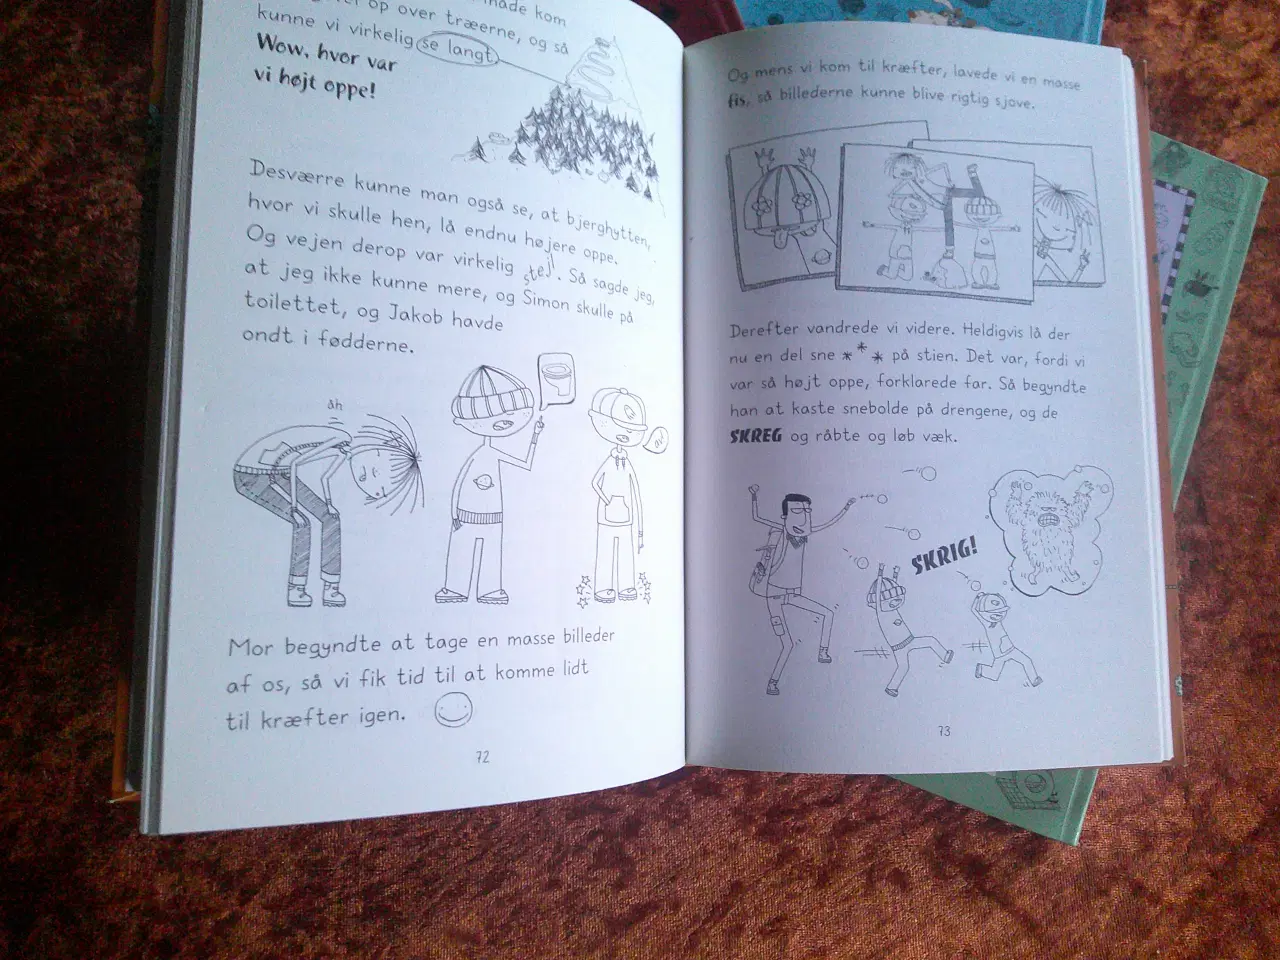 op over træerne, og så
kunne vi virkelig se langt.
Wow, hvor var
vi højt oppe!
Desværre kunne man også se, at bjerghytten,
hvor vi skulle hen, lå endnu højere oppe.
Og vejen derop var virkelig stejl. Så sagde jeg,
at jeg ikke kunne mere, og Simon skulle på
toilettet, og Jakob havde
ondt i fødderne.
åh
av!
Mor begyndte at tage en masse billeder
af os, så vi fik tid til at komme lidt
til kræfter igen.
72
Og mens vi kom til kræfter, lavede vi en masse
fis, så billederne kunne blive rigtig sjove.
Derefter vandrede vi videre. Heldigvis lå der
nu en del sne * * * på stien. Det var, fordi vi
var så højt oppe, forklarede far. Så begyndte
han at kaste snebolde på drengene, og de
SKREG og råbte og løb væk.
SKRIG!
73